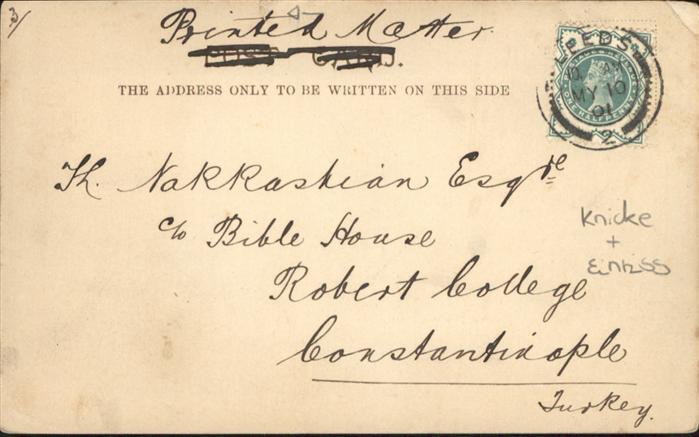 3/
Printed Matter
POST CARD.
THE ADDRESS ONLY TO BE WRITTEN ON THIS SIDE
LEEDS
MY 10
01
2
ONE HALFPENNY
Th. Nakkashian Esqre
c/o Bible House
Robert College
Constantinople
Turkey.
Knicke
+
Einriss